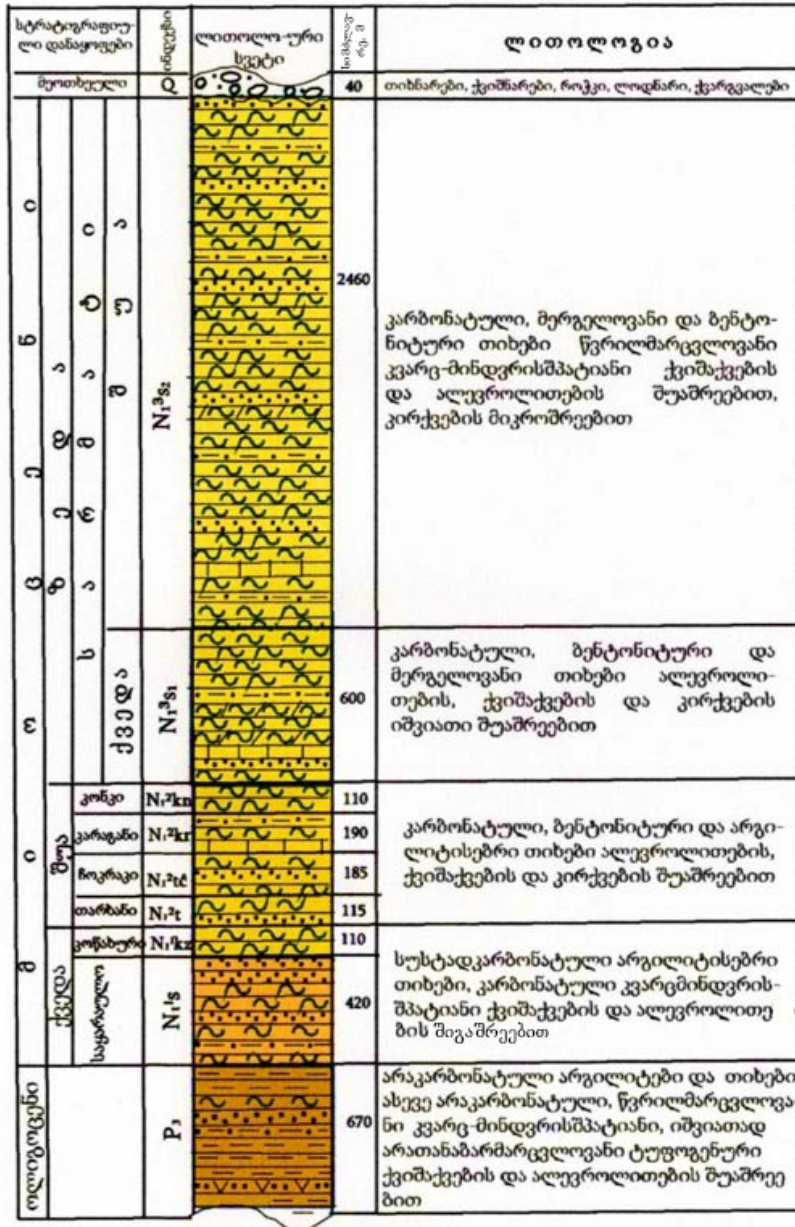 სტრატიგრაფიუ-
ლი დანაყოფები
ინდექსი
ლითოლო-ური
სვეტი
სიმძლავ-
რე, მ
ლითოლოგია
მეოთხეული
Q
40
თიხნარები, ქვიშნარები, როჭკი, ლოდნარი, ქვარგვალები
მიოცენი
ზედა
სარმატი
შუა
N₁³s₂
2460
კარბონატული, მერგელოვანი და ბენტო-
ნიტური თიხები წვრილმარცვლოვანი
კვარც-მინდვრისშპატიანი ქვიშაქვების
და ალევროლითების შუაშრეებით,
კირქვების მიკროშრეებით
ქვედა
N₁³s₁
600
კარბონატული, ბენტონიტური და
მერგელოვანი თიხები ალევროლი-
თების, ქვიშაქვების და კირქვების
იშვიათი შუაშრეებით
შუა
კონკი
N₁²kn
110
კარაგანი
N₁²kr
190
კარბონატული, ბენტონიტური და არგი-
ლიტისებრი თიხები ალევროლითების,
ქვიშაქვების და კირქვების შუაშრეებით
ჩოკრაკი
N₁²tč
185
თარხანი
N₁²t
115
ქვედა
კოწახური
110
საყარაულო
N₁¹s
420
სუსტადკარბონატული არგილიტისებრი
თიხები, კარბონატული კვარცმინდვრის-
შპატიანი ქვიშაქვების და ალევროლითე
ბის შიგაშრეებით
ოლიგოცენი
P₃
670
არაკარბონატული არგილიტები და თიხები
ასევე არაკარბონატული, წვრილმარცვლოვა
ნი კვარც-მინდვრისშპატიანი, იშვიათად
არათანაბარმარცვლოვანი ტუფოგენური
ქვიშაქვების და ალევროლითების შუაშრეე
ბით